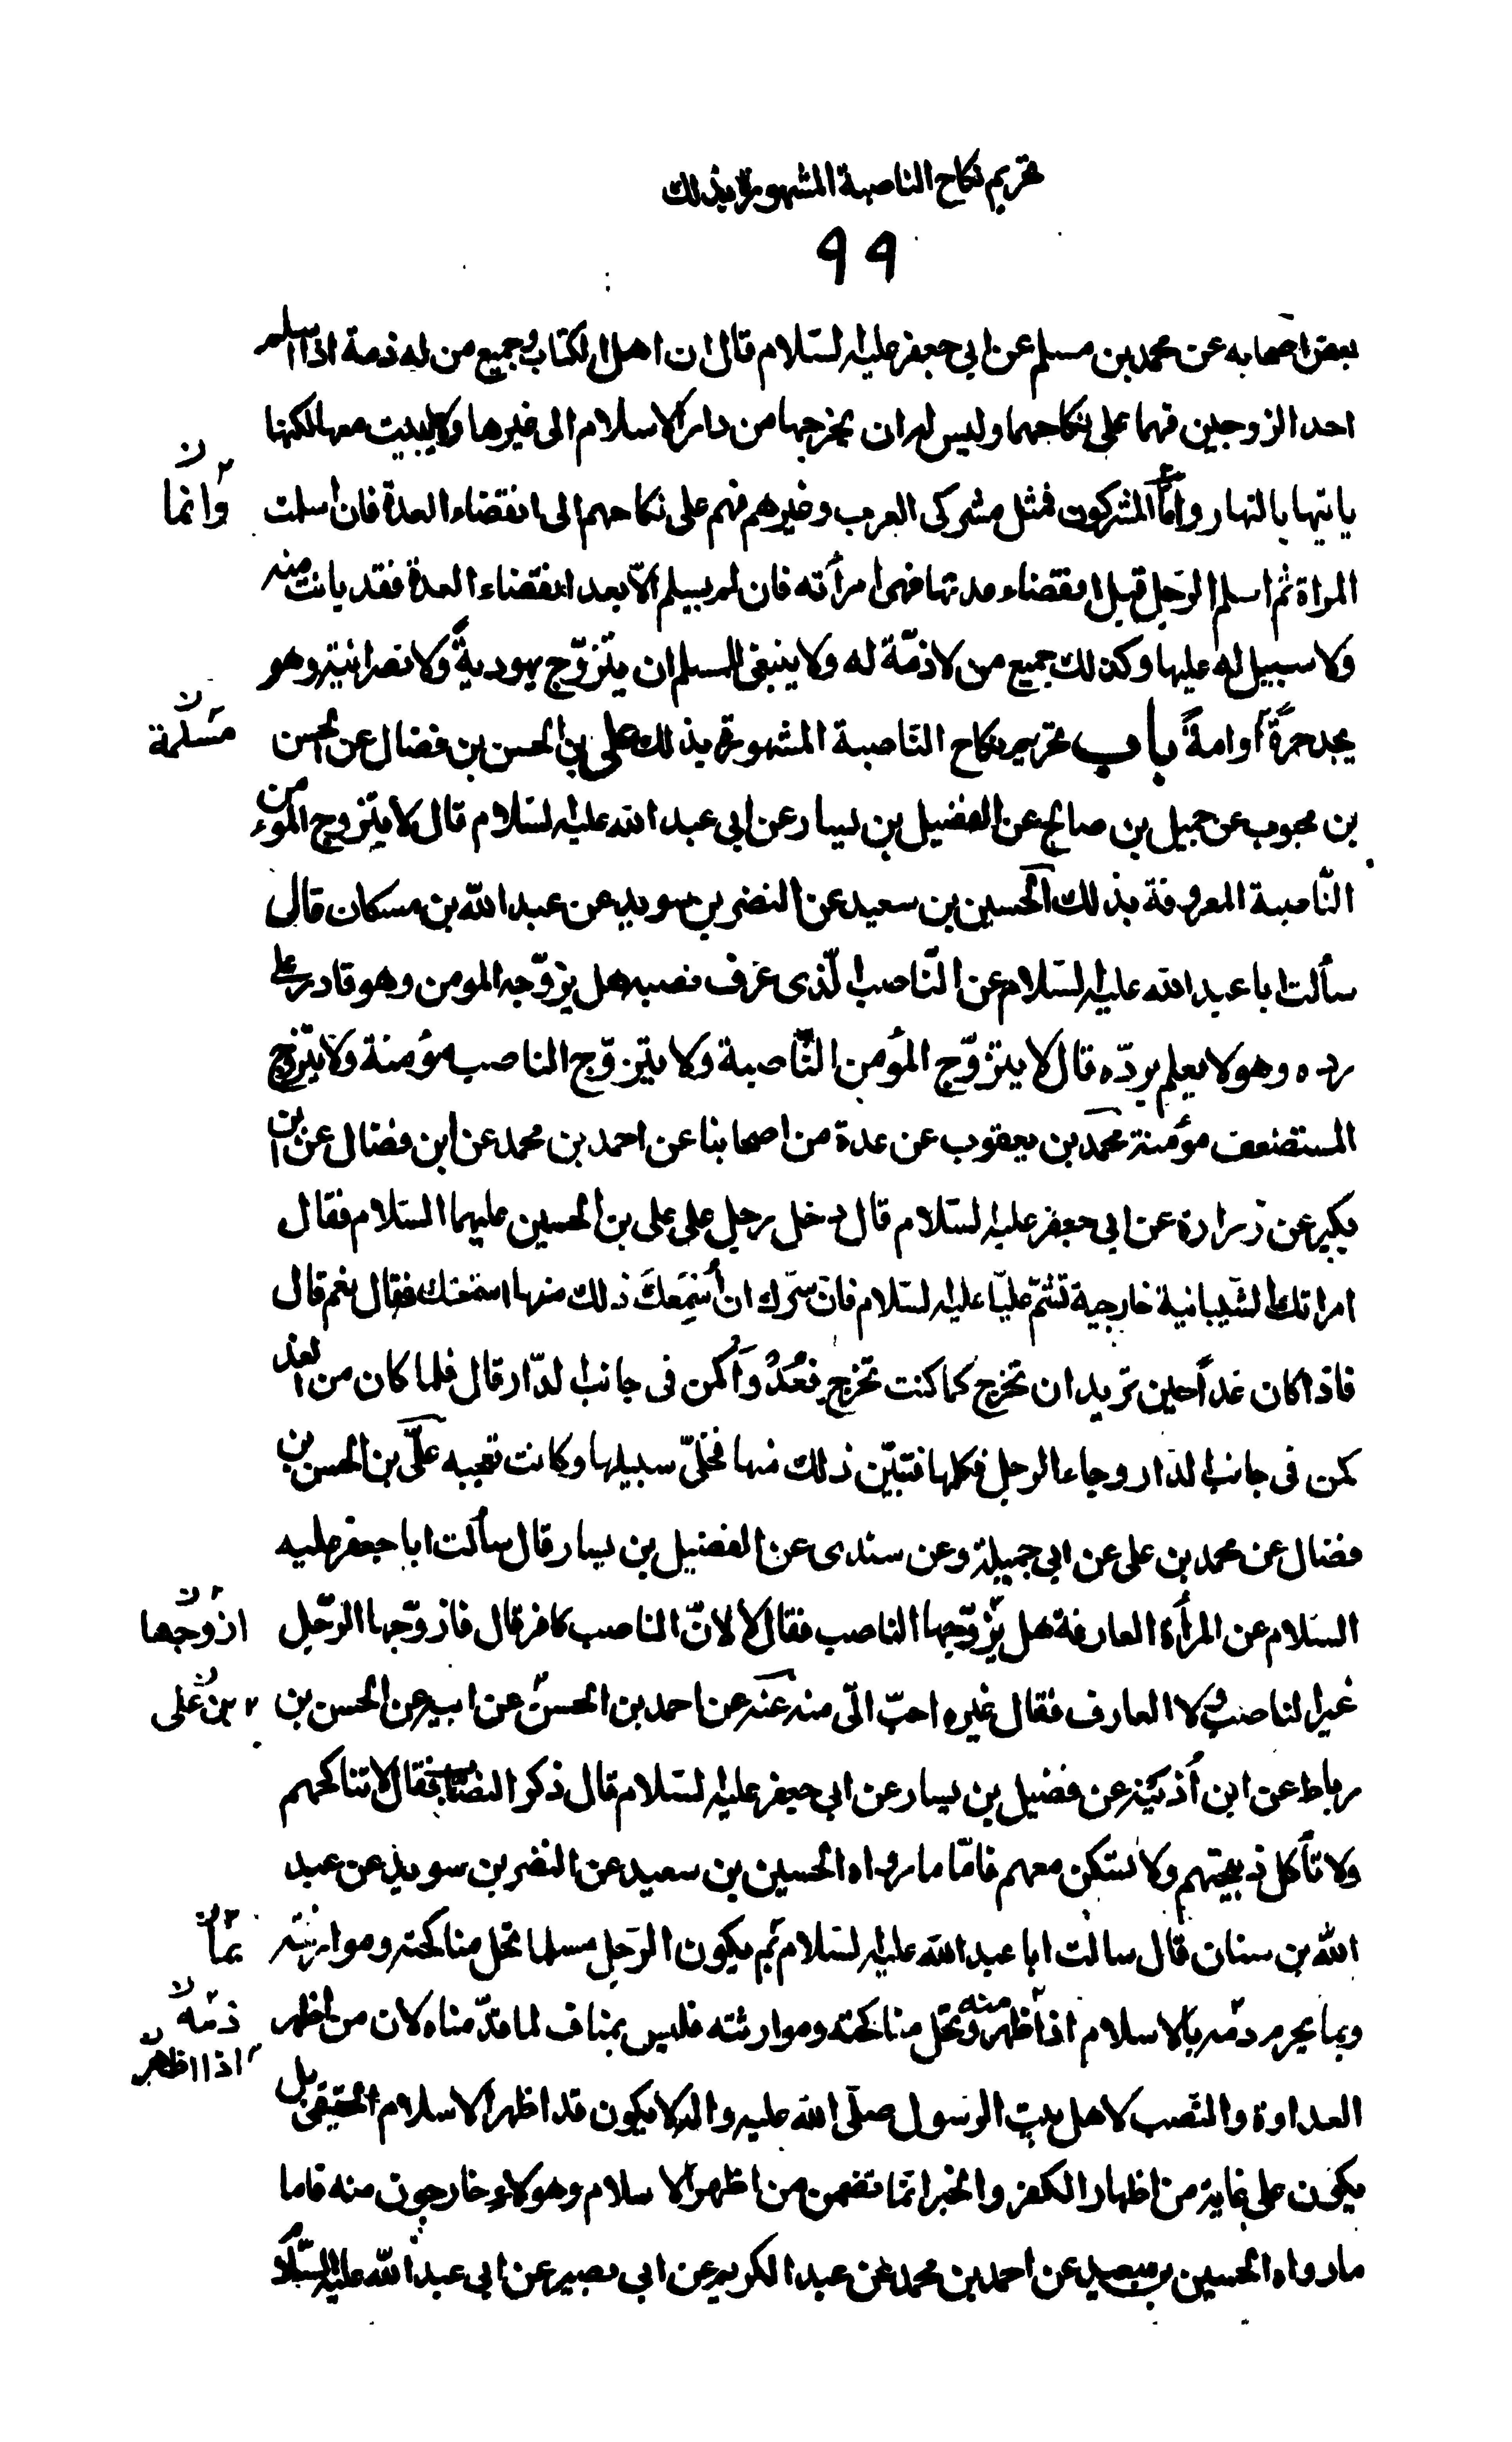 تحريم نكاح الناصبة المشهورة بذلك
٩٩
بعض اصحابه عن محمد بن مسلم عن ابى جعفر عليه السلام قال ان اهل الكتاب وجميع من له ذمة اذا اسلم
احد الزوجين فهما على نكاحهما وليس له ان يخرجها من دار الاسلام الى غيرها ولا يبيت معها لكنها
ياتيها بالنهار وامّا المشركون فمثل مشركى العرب وغيرهم فهم على نكاحهم الى انقضاء العدة فان اسلمت
وانما
المراة ثم اسلم الرجل قبل انقضاء عدتها فهى امرأته فان لم يسلم الّا بعد انقضاء العدة فقد بانت منه
ولا سبيل له عليها وكذلك جميع من لا ذمّة له ولا ينبغى للمسلم ان يتزوّج يهوديةً ولا نصرانية وهو
يجد حرّةً أوامةً باب تحريم نكاح النّاصبة المشهورة بذلك على بن الحسن بن فضال عن الحسن
مسلمة
بن محبوب عن جميل بن صالح عن الفضيل بن يسار عن ابى عبد الله عليه السلام قال لا يتزوج المؤمن
النّاصبة المعروفة بذلك الحسين بن سعيد عن النضر بن سويد عن عبد الله بن مسكان قال
سألت ابا عبد الله عليه السّلام عن النّاصب الّذى عرف نصبه هل يزوّجه المومن وهو قادر على
رده وهو لا يعلم بردّه قال لا يتزوّج المؤمن النّاصبة ولا يتزوّج الناصب مؤمنة ولا يتزوج
المستضعف مؤمنة محمد بن يعقوب عن عدة من اصحابنا عن احمد بن محمد عن ابن فضال عن ابن
بكير عن زرارة عن ابى جعفر عليه السّلام قال دخل رجل على على بن الحسين عليهما السّلام فقال
امراتك الشيبانية خارجية تشتم عليّا عليه السّلام فان سرّك ان أُسْمِعَكَ ذلك منها اسمعتك فقال نعم قال
فاذا كان غداً حين تريد ان تخرج كما كنت تخرج فعُدْ وأكمن فى جانب الدّار قال فلما كان من الغد
كمن فى جانب الدار وجاء الرجل فكلمها فتبيّن ذلك منها فخلّى سبيلها وكانت تعجبه علّى بن الحسن بن
فضال عن محمد بن على عن ابى جميلة وعن سندى عن الفضيل بن يسار قال سألت ابا جعفر عليه
السّلام عن المرأة العارفة هل يُزوّجها الناصب فقال لا لانّ الناصب كافر قال فازوّجها الرّجل
ازوجها
غير الناصب ولا العارف فقال غيره احبّ الّى منه عنه عن احمد بن الحسن عن ابيه عن الحسن بن
بن على
رباط عن ابن أُذَينة عن فضيل بن يسار عن ابى جعفر عليه السّلام قال ذكر النصّاب فقال لا تناكحهم
ولا تأكل ذبيحتهم ولا تسكن معهم فامّا ما رواه الحسين بن سعيد عن النضر بن سويد عن عبد
الله بن سنان قال سالت ابا عبد الله عليه السّلام بم يكون الرّجل مسلما تحل مناكحته وموارثته
بما
وبما يحرم دمه بالاسلام اذا أظهر منه وتحل مناكحته وموارثته فليس بمناف لما قدّمناه لان من اظهر
ذمّه
اذا اظهر
العداوة والنّصب لاهل بيت الرّسول صلّى الله عليه واله لا يكون قد اظهر الاسلام الحقيقى بل
يكون على غاية من اظهار الكفر والخبر انّما تضمن من اظهر الاسلام وهولاء خارجون منه فاما
ما رواه الحسين بن سعيد عن احمد بن محمد عن عبد الكريم عن ابى بصير عن ابى عبد الله عليه السّلام